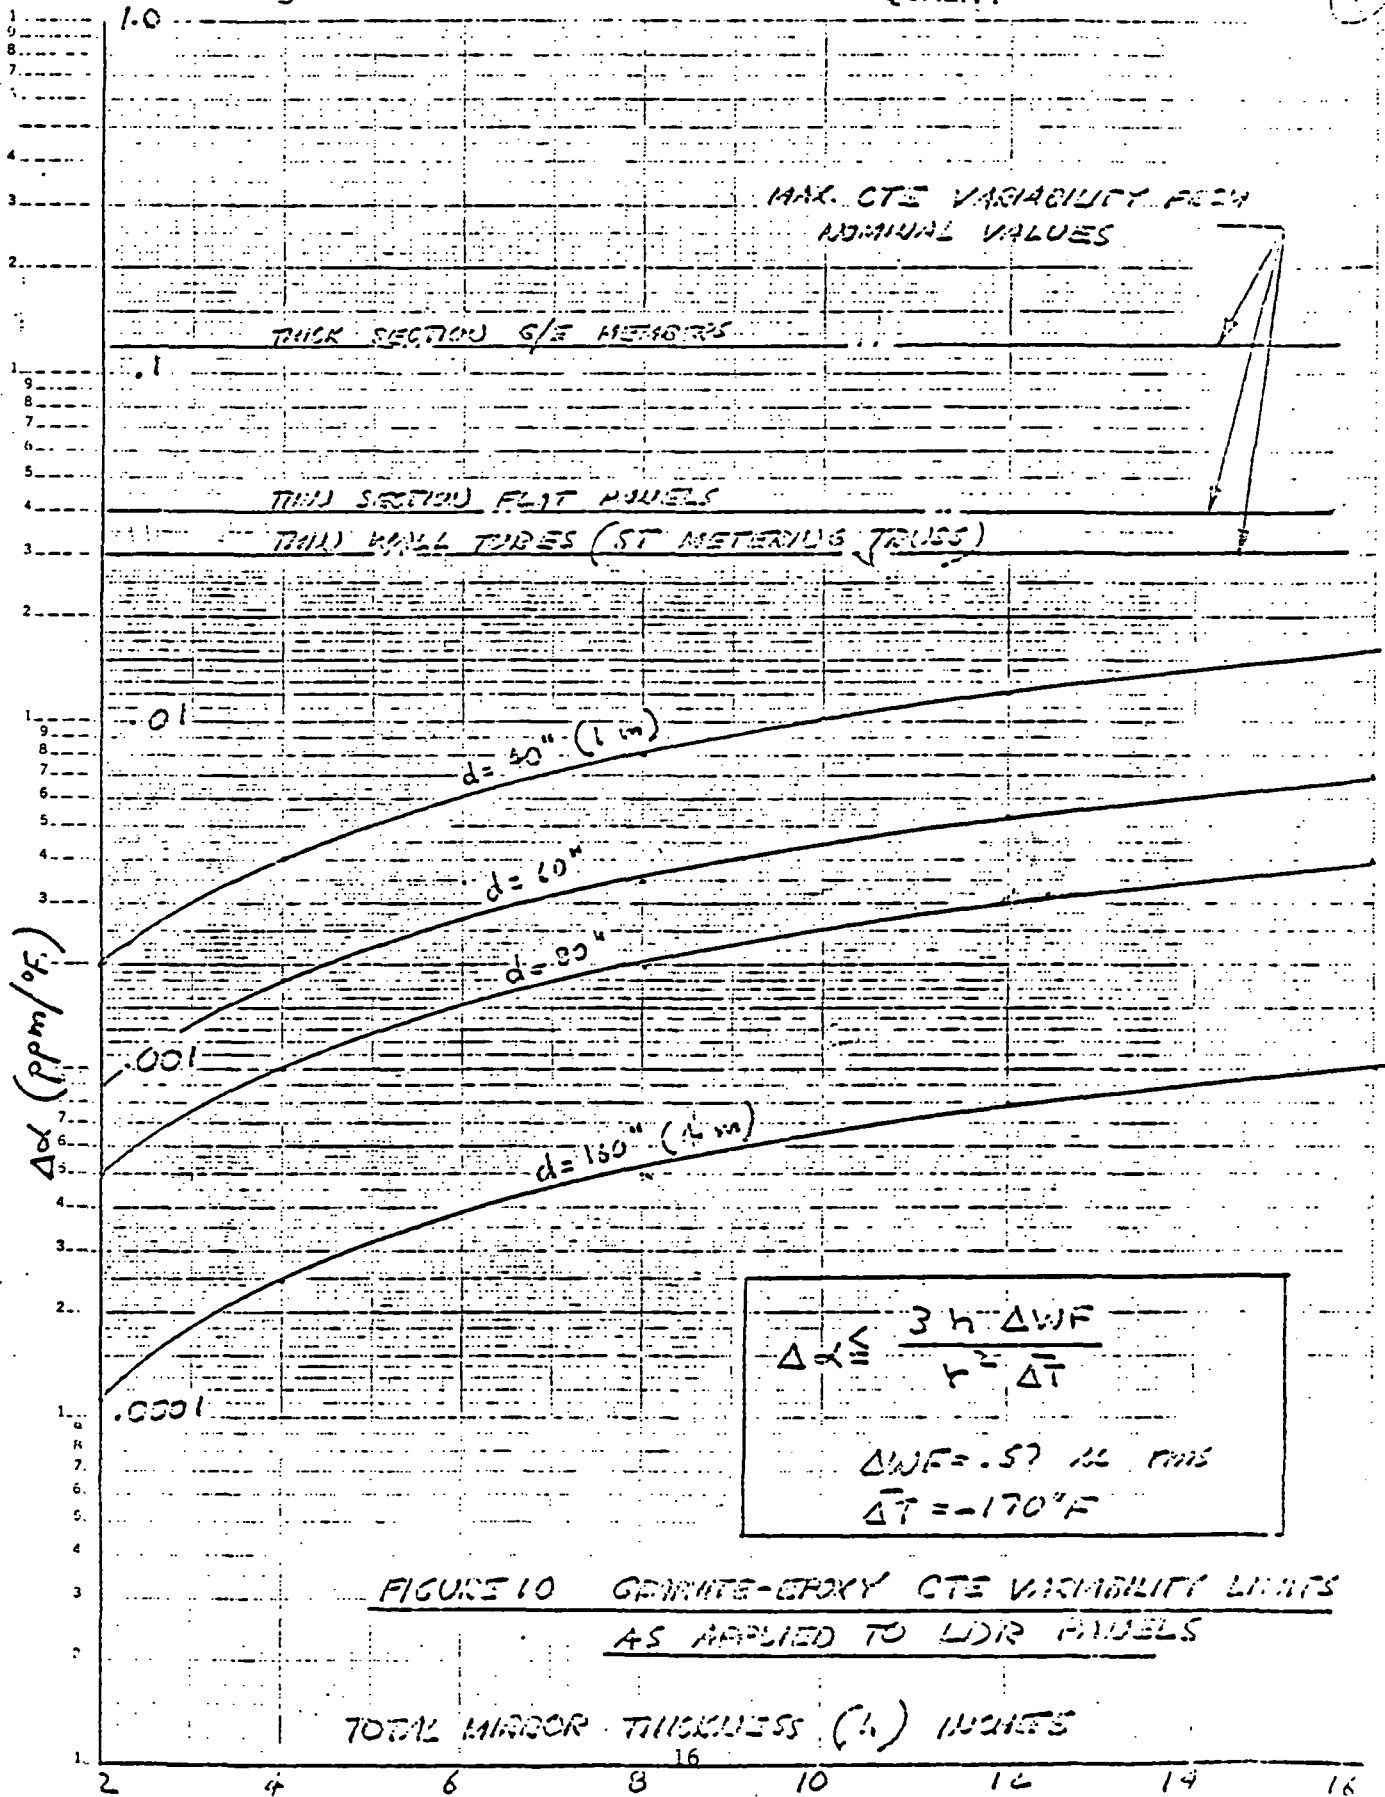 1.0
MAX. CTE VARIABILITY FROM
NOMINAL VALUES
THICK SECTION G/E MEMBERS
.1
THIN SECTION FLAT PANELS
THIN WALL TUBES (ST METERING TRUSS)
.01
d= 40" (1 m)
d= 60"
d= 80"
.001
Δα (ppm/°F)
d= 160" (4 m)
.0001
Δα ≦ 3 h ΔWF
r² Δ̄T
ΔWF = .57 rms
Δ̄T = -170°F
FIGURE 10 GRAPHITE-EPOXY CTE VARIABILITY LIMITS
AS APPLIED TO LDR PANELS
TOTAL MIRROR THICKNESS (h) INCHES
16
2 4 6 8 10 12 14 16